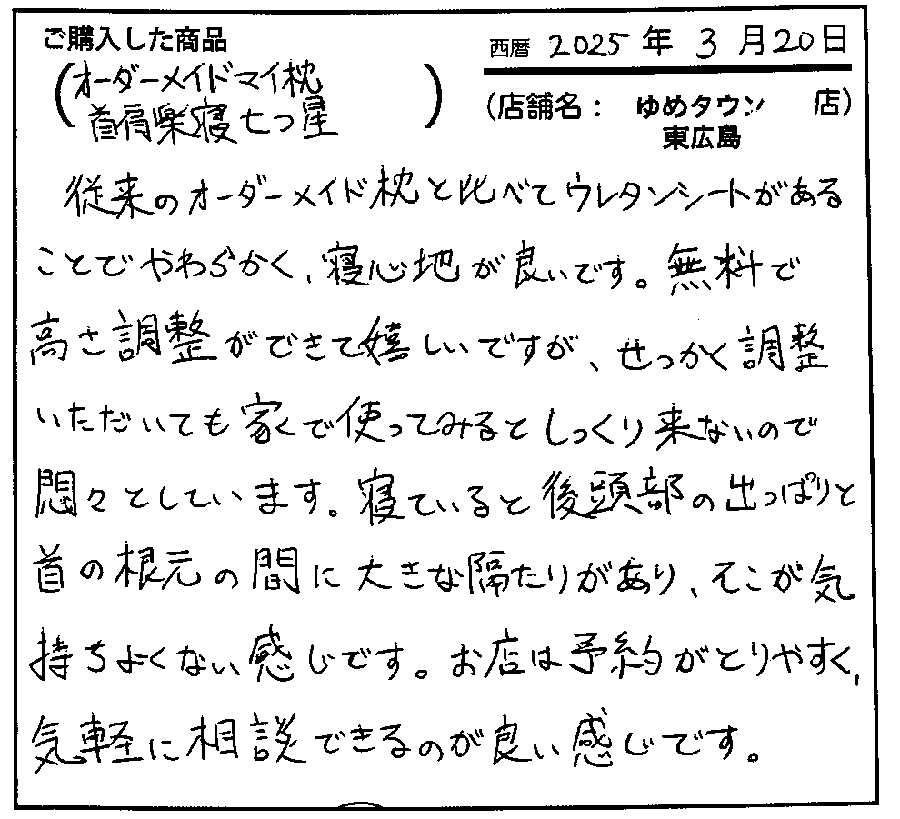 ご購入した商品
西暦 2025年3月20日
(オーダーメイドマイ枕
首肩楽寝七つ星)
(店舗名: ゆめタウン 店)
東広島
従来のオーダーメイド枕と比べてウレタンシートがある
ことでやわらかく、寝心地が良いです。無料で
高さ調整ができて嬉しいですが、せっかく調整
いただいても家で使ってみるとしっくり来ないので
悶々としています。寝ていると後頭部の出っぱりと
首の根元の間に大きな隔たりがあり、そこが気
持ちよくない感じです。お店は予約がとりやすく、
気軽に相談できるのが良い感じです。